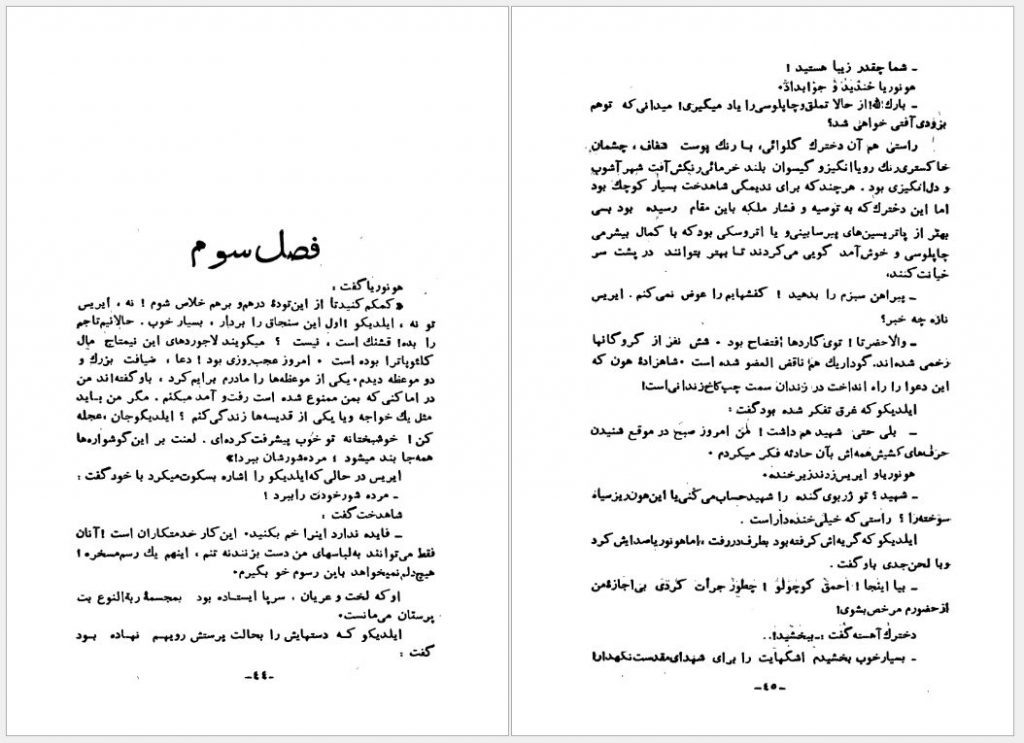 فصل سوم
هونوریا گفت :
«کمکم کنید تا از این تودهٔ درهم و برهم خلاص شوم ! نه ، ایریس
تو نه ، ایلدیکو ! اول این سنجاق را بردار ، بسیار خوب . حالا نیم تاجم
را بده ! قشنك است ، نیست ؟ میگویند لاجوردهای این نیمتاج مال
کلئوپاترا بوده است . امروز عجب روزی بود ! دعا ، ضیافت بزرك و
دو موعظه دیدم . یکی از موعظه‌ها را مادرم برایم کرد ، باو گفته‌اند من
در اماکنی که بمن ممنوع شده است رفت و آمد میکنم . مگر من باید
مثل یك خواجه و یا یکی از قدیسه‌ها زندگی کنم ؟ ایلدیکو جان ، عجله
کن ! خوشبختانه تو خوب پیشرفت کرده‌ای . لعنت بر این گوشواره‌ها
همه جا بند میشود ! مرده شورشان ببرد !»
ایریس در حالی که ایلدیکو را اشاره بسکوت میکرد با خود گفت :
ـ مرده شور خودت را ببرد !
شاهدخت گفت :
ـ فایده ندارد اینرا خم بکنید . این کار خدمتکاران است ! آنان
فقط می‌توانند به لباسهای من دست بزنند نه تنم ، اینهم یك رسم مسخره !
هیچ دلم نمیخواهد باین رسوم خو بگیرم .
او که لخت و عریان ، سرپا ایستاده بود بمجسمهٔ ربة‌النوع بت
پرستان می‌مانست .
ایلدیکو کـه دستهایش را بحالت پرستش رویهم نهاده بـود
گفت :
ـ٤٤ـ
ـ شما چقدر زیبا هستید !
هونوریا خندید و جوابداد .
ـ بارك‌الله ! از حالا تملق و چاپلوسی را یاد میگیری ! میدانی که توهم
بزودی آفتی خواهی شد ؟
راستی هم آن دخترك گلوائی ، بـا رنك پوست شفاف ، چشمان
خاکستری رنك رویا انگیز و گیسوان بلند خرمائی رنگش آفت شهر آشوب
و دل انگیزی بود . هرچند که برای ندیمگی شاهدخت بسیار کوچك بود
اما این دخترك که به توصیه و فشار ملکه باین مقام رسیده بود بسی
بهتر از پاتریسین‌های پیر سابینی و یا اتروسکی بود که با کمال بیشرمی
چاپلوسی و خوش‌آمد گویی می‌کردند تـا بهتر بتوانند در پشت سر
خیانت کنند ،
ـ پیراهن سبزم را بدهید ! کفشهایم را عوض نمی‌کنم . ایریس
تازه چه خبر ؟
ـ والاحضرتا ! توی گاردها افتضاح بود . شش نفر از گروگانها
زخمی شده‌اند . گوداریك هم ناقص العضو شده است . شاهزادهٔ هون که
این دعوا را راه انداخت در زندان سمت چپ کاخ زندانی است !
ایلدیکو که غرق تفکر شده بود گفت :
ـ بلی حتی شهید هم داشت ! من امروز صبح در موقع شنیدن
حرف‌های کشیش همه‌اش بآن حادثه فکر میکردم .
هونوریا و ایریس زدند زیر خنده .
ـ شهید ؟ تو ژربوی گنده را شهید حساب می‌کنی یا این هون ریز سیاه
سوخته را ؟ راستی که خیلی خنده دار است .
ایلدیکو که گریه‌اش گرفته بود بطرف در رفت ، اما هونوریا صدایش کرد
و با لحن جدی باو گفت .
ـ بیا اینجا ! احمق کوچولو ! چطور جرأت کردی بی اجازهٔ من
از حضورم مرخص بشوی !
دخترك آهسته گفت : ـ ببخشید ! ..
ـ بسیار خوب بخشیدم اشکهایت را برای شهدای مقدست نگهدار !
ـ٤٥ـ